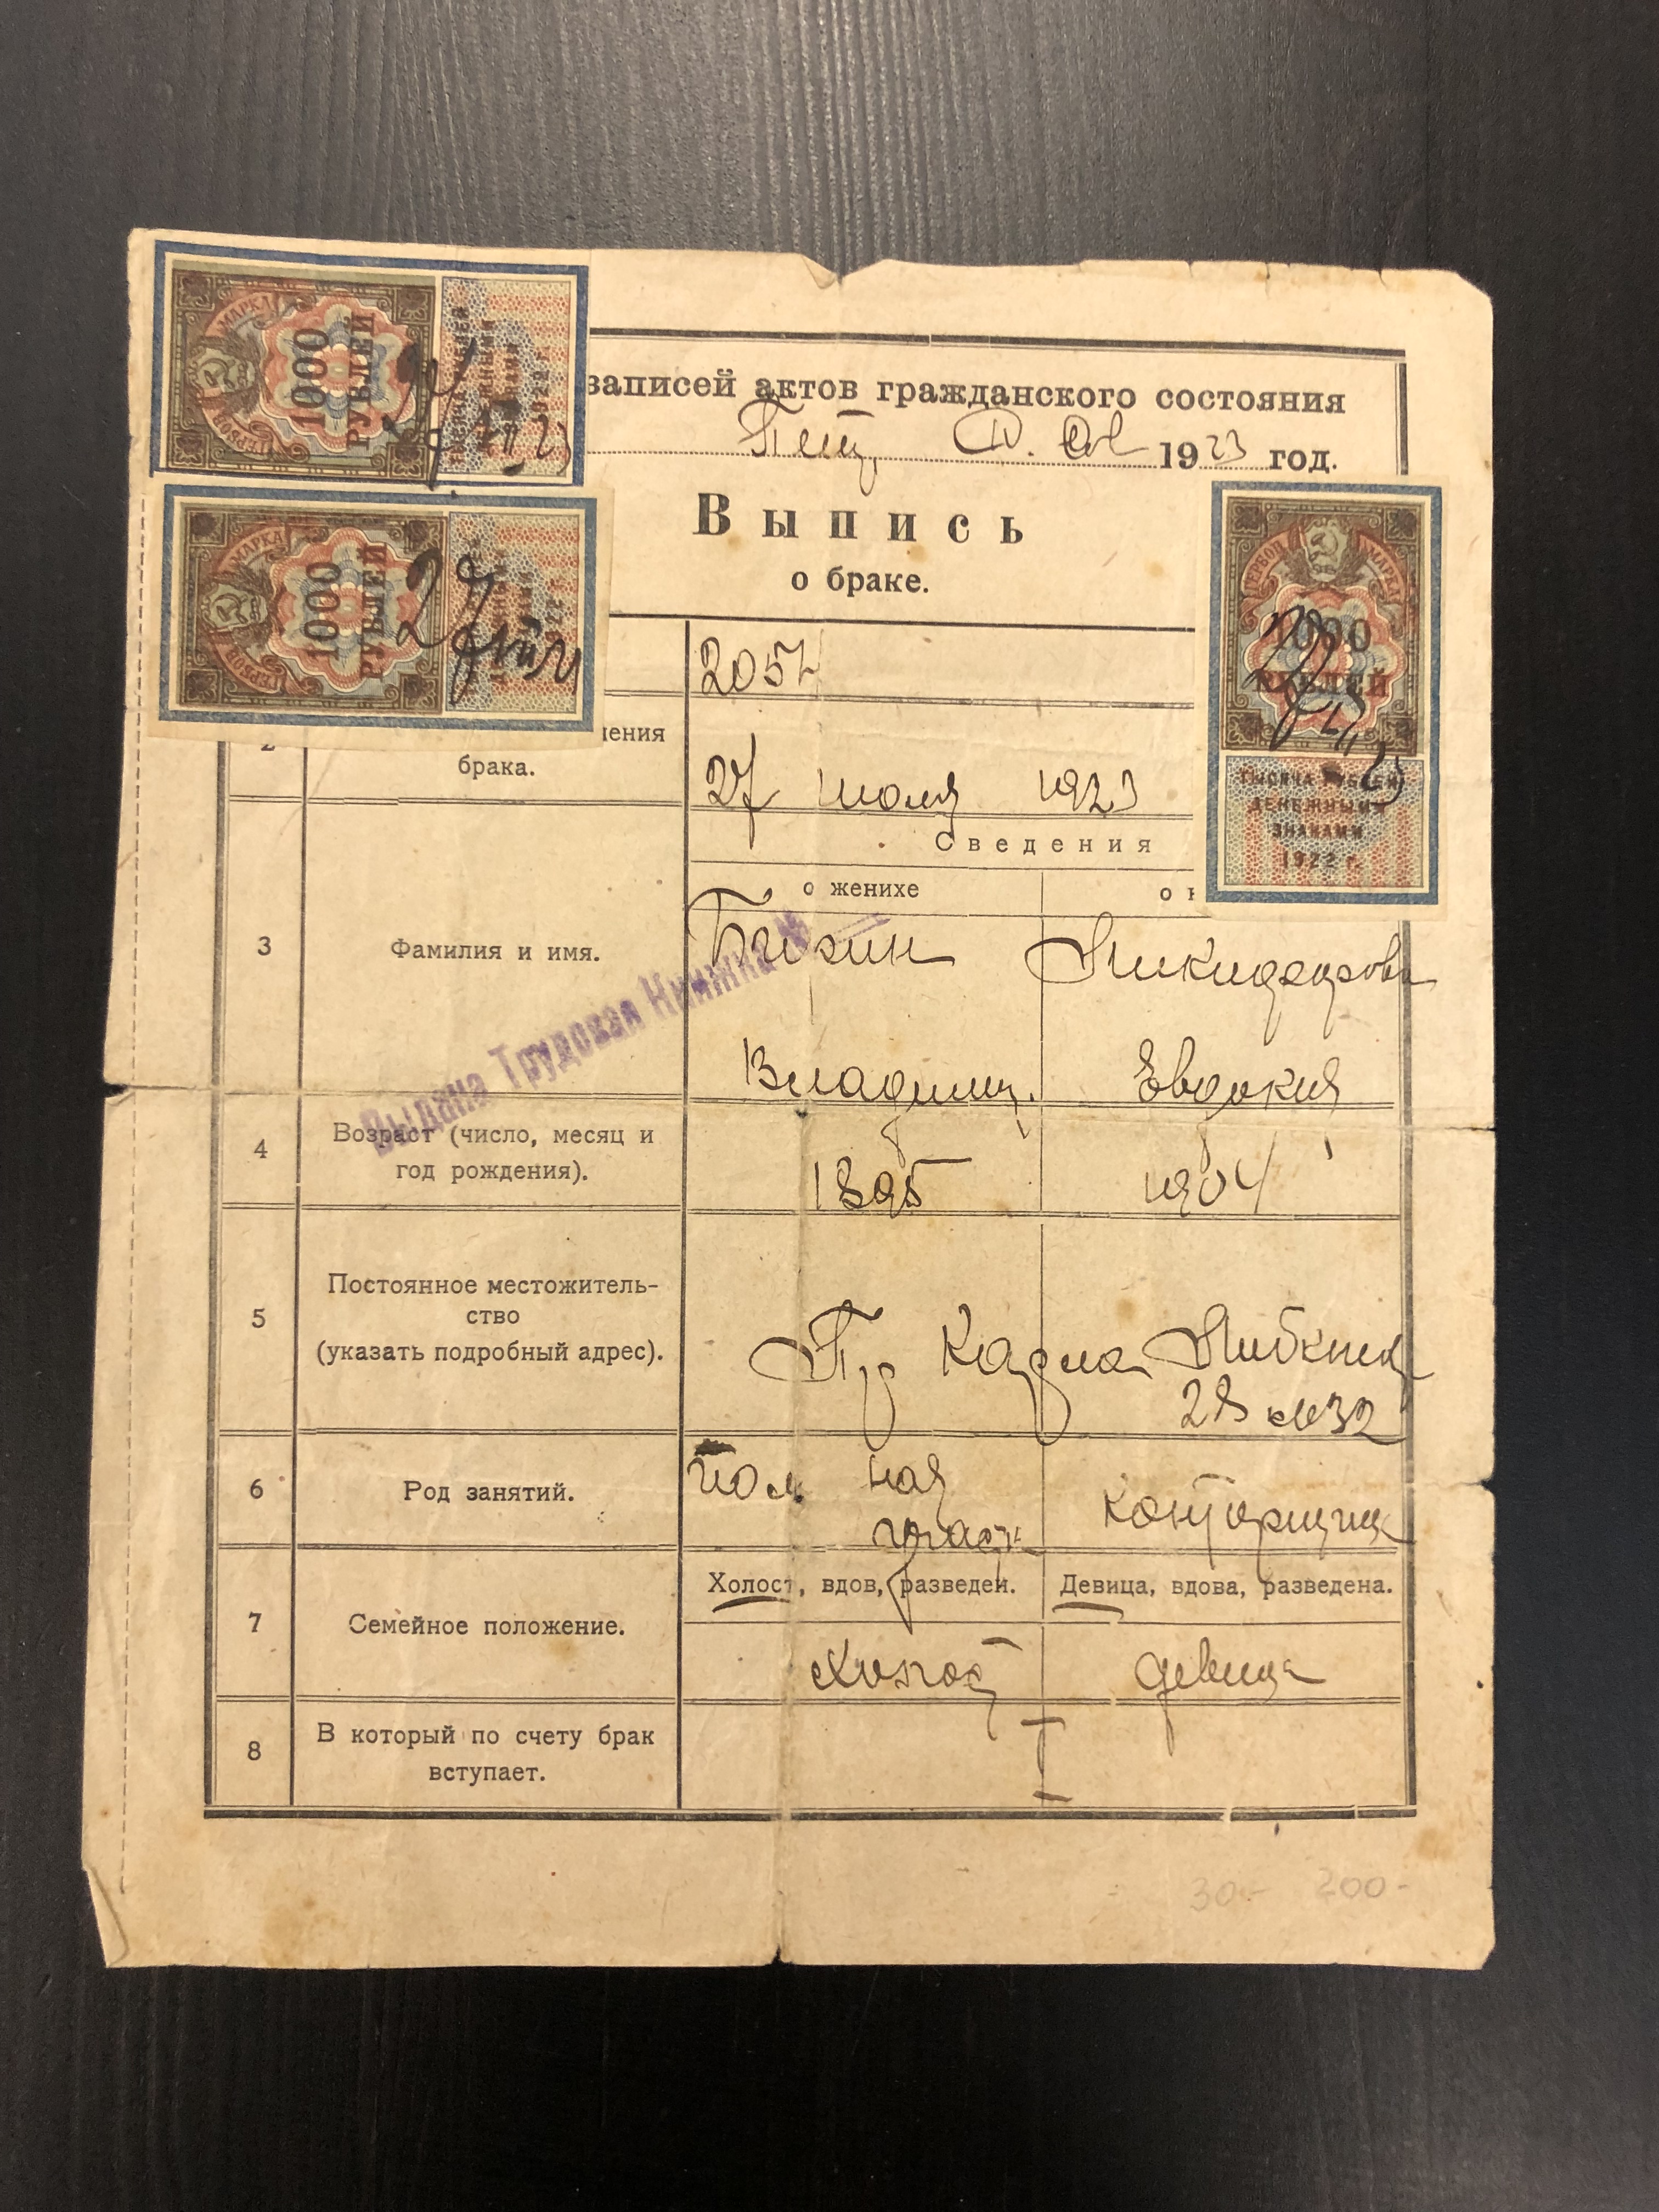 записей актов гражданского состояния
1923 год.
Выпись
о браке.
ГЕРБОВ. МАРКА
1000
РУБЛЕЙ
ТЫСЯЧА РУБЛЕЙ
ДЕНЕЖНЫМИ
ЗНАКАМИ
1922 г.
ГЕРБОВ. МАРКА
1000
РУБЛЕЙ
27
ГЕРБОВ. МАРКА
1000
РУБЛЕЙ
ТЫСЯЧА РУБЛЕЙ
ДЕНЕЖНЫМИ
ЗНАКАМИ
1922 г.
2
ения
брака.
27 июля 1923
Сведения
о женихе
о н
3
Фамилия и имя.
Владимир. Евдокия
Выдана Трудовая Книжка №
4
Возраст (число, месяц и
год рождения).
1895 1904
5
Постоянное местожитель-
ство
(указать подробный адрес).
Пр Карла Либкнех
28 кв 32
6
Род занятий.
пом нач
конторщица
7
Семейное положение.
Холост, вдов, разведен.
Девица, вдова, разведена.
Холост девица
8
В который по счету брак
вступает.
I
30- 200-